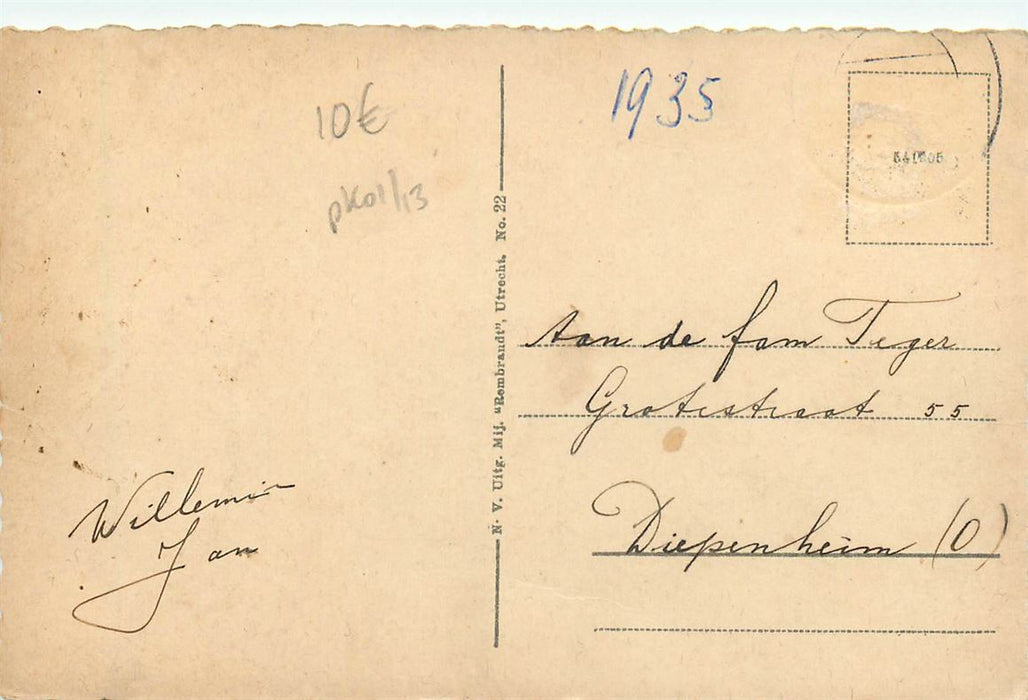 10€
pk01/13
Willemin
Jan
N. V. Uitg. Mij. "Rembrandt", Utrecht. No. 22
1935
Aan de fam Teger
Grotestraat 55
Diepenheim (O)